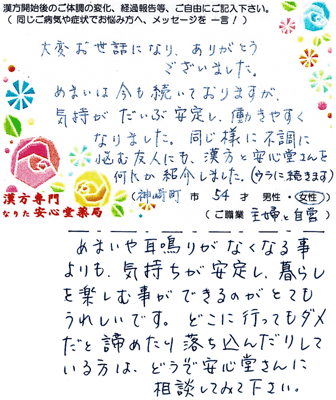 漢方開始後のご体調の変化、経過報告等、ご自由にご記入下さい。
( 同じご病気や症状でお悩み方へ、メッセージを 一言！)
大変お世話になり、ありがとう
ございました。
めまいは今も続いておりますが、
気持が だいぶ安定し、働きやすく
なりました。同じ様に不調に
悩む友人にも、漢方と安心堂さんを
何だか紹介しました。(ウラに続きます)
漢方専門
なりた安心堂薬局
(神崎町 市 54 才 男性・女性)
(ご職業 主婦と自営)
めまいや耳鳴りがなくなる事
よりも、気持ちが安定し、暮らし
を楽しむ事ができるのがとても
うれしいです。どこに行ってもダメ
だと諦めたり落ち込んだりして
いる方は、どうぞ安心堂さんに
相談してみて下さい。